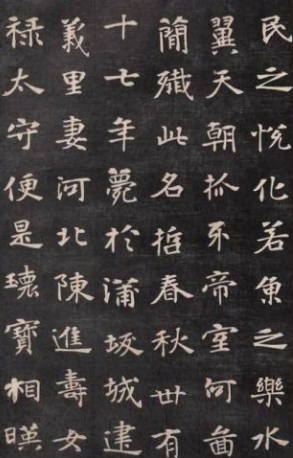 民之悅化若魚之樂水
翼天朝抓牙帝室何啚
簡殲此名哲春秋卅有
十七年薨於蒲坂城建
義里妻河北陳進壽女
祿太守便是瓌寶相暎